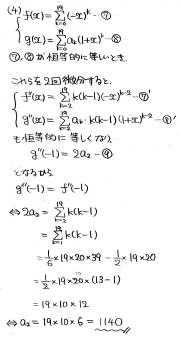 (4) { f(x) = Σ[k=0→19] (-x)^k …⑦
{ g(x) = Σ[k=0→19] a_k(1+x)^k …⑧
⑦, ⑧が恒等的に等しいとき
これらを2回微分すると,
{ f''(x) = Σ[k=2→19] k(k-1)(-x)^{k-2} …⑦'
{ g''(x) = Σ[k=2→19] a_k・k(k-1)(1+x)^{k-2} …⑧'
も恒等的に等しくなり,
g''(-1) = 2a_2 …⑨
となるから
g''(-1) = f''(-1)
⇔ 2a_2 = Σ[k=2→19] k(k-1)
= Σ[k=1→19] k(k-1)
= 1/6 × 19 × 20 × 39 - 1/2 × 19 × 20
= 1/2 × 19 × 20 × (13-1)
= 19 × 10 × 12
⇔ a_2 = 19 × 10 × 6 = 1140